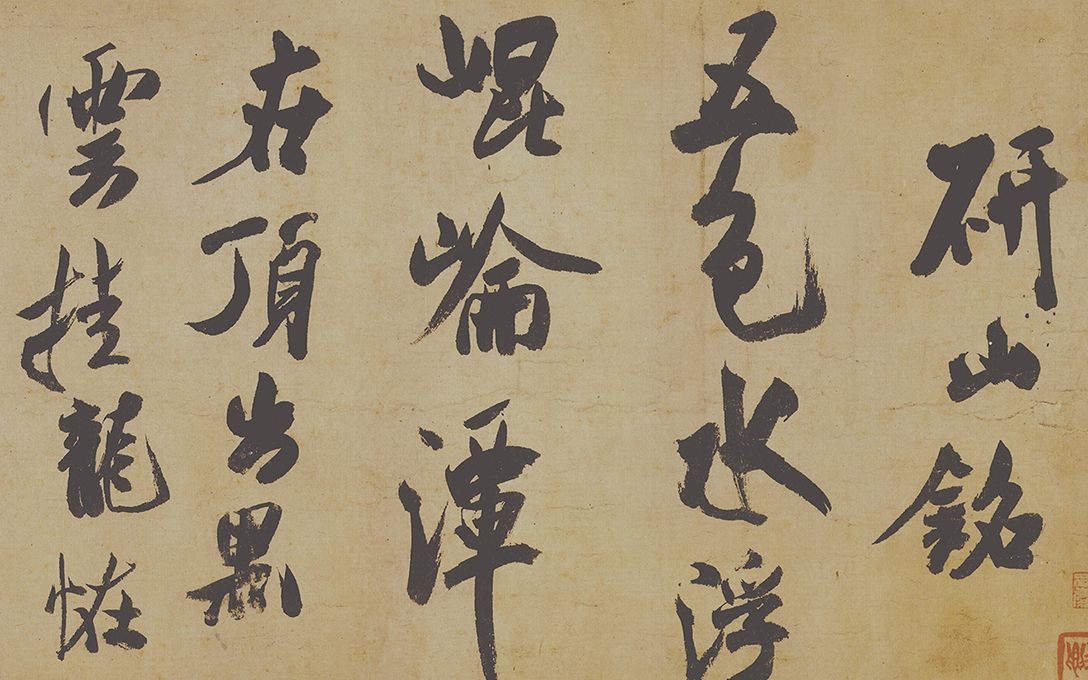 研山銘
五色水浮
崐崘潭
在頂出黑
雲挂龍恠